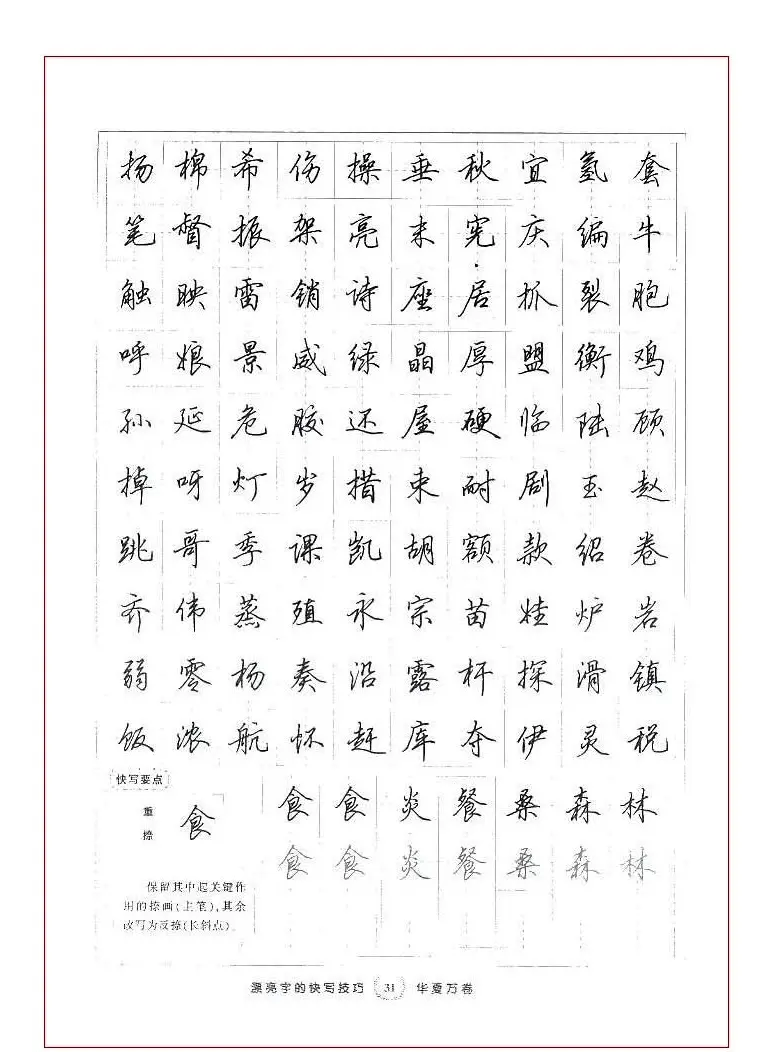 扬棉希伤操垂秋宜氢套
笔督振架亮末宪庆编牛
触映雷销诗座居抓裂胞
呼娘景威绿晶厚盟衡鸡
孙延危胶还屋硬临陆顾
掉呀灯岁措束耐剧玉赵
跳哥季课凯胡额款绍卷
齐伟蒸殖永宗苗娃炉岩
弱零杨奏沿露杆探滑镇
饭浓航怀赶库夺伊灵税
快写要点
重捺
食
食食炎餐桑森林
食食炎餐桑森林
保留其中起关键作
用的捺画(主笔),其余
改写为反捺(长斜点)
漂亮字的快写技巧 31 华夏万卷